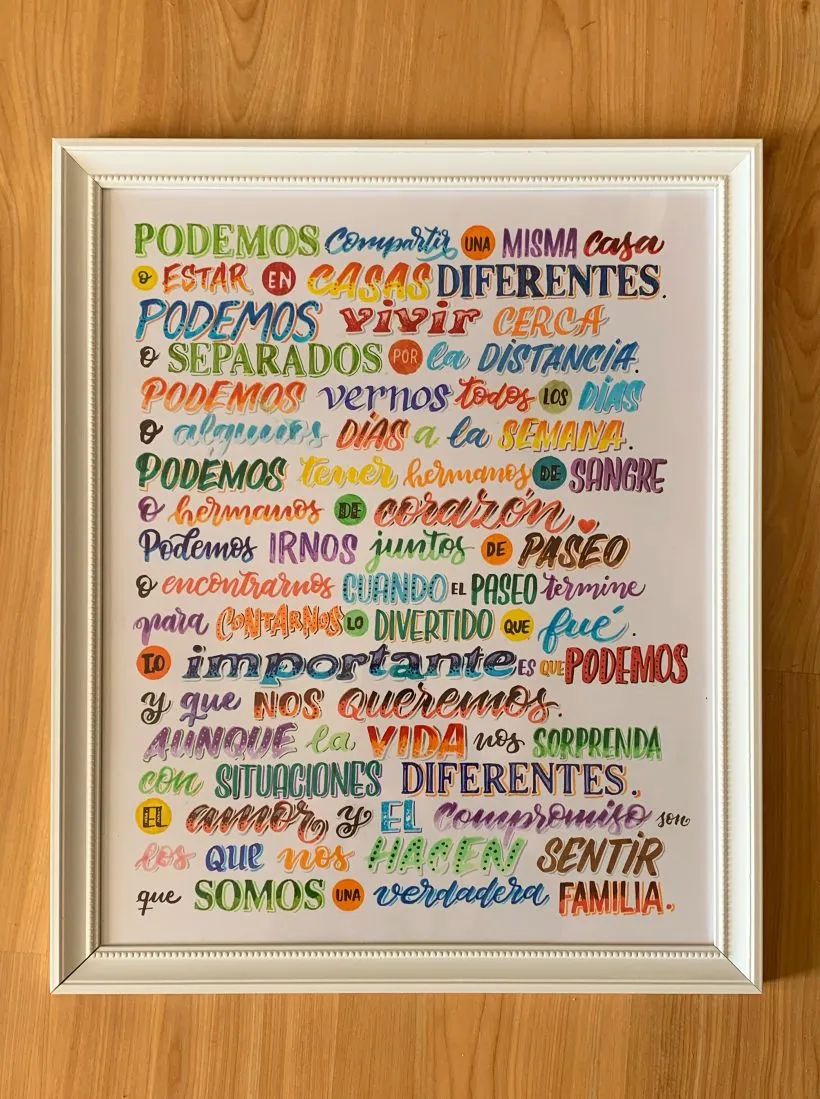 PODEMOS Compartir UNA MISMA Casa
o ESTAR EN CASAS DIFERENTES.
PODEMOS vivir CERCA
o SEPARADOS POR la DISTANCIA.
PODEMOS vernos todos LOS DÍAS
o algunos DÍAS a la SEMANA.
PODEMOS tener hermanos DE SANGRE
o hermanos DE corazón.
Podemos IRNOS juntos DE PASEO
o encontrarnos CUANDO EL PASEO termine
para CONTARNOS LO DIVERTIDO QUE fué.
LO importante ES QUE PODEMOS
y que NOS Queremos.
AUNQUE la VIDA nos SORPRENDA
con SITUACIONES DIFERENTES.
El amor y EL Compromiso son
los QUE nos HACEN SENTIR
que SOMOS UNA verdadera FAMILIA.